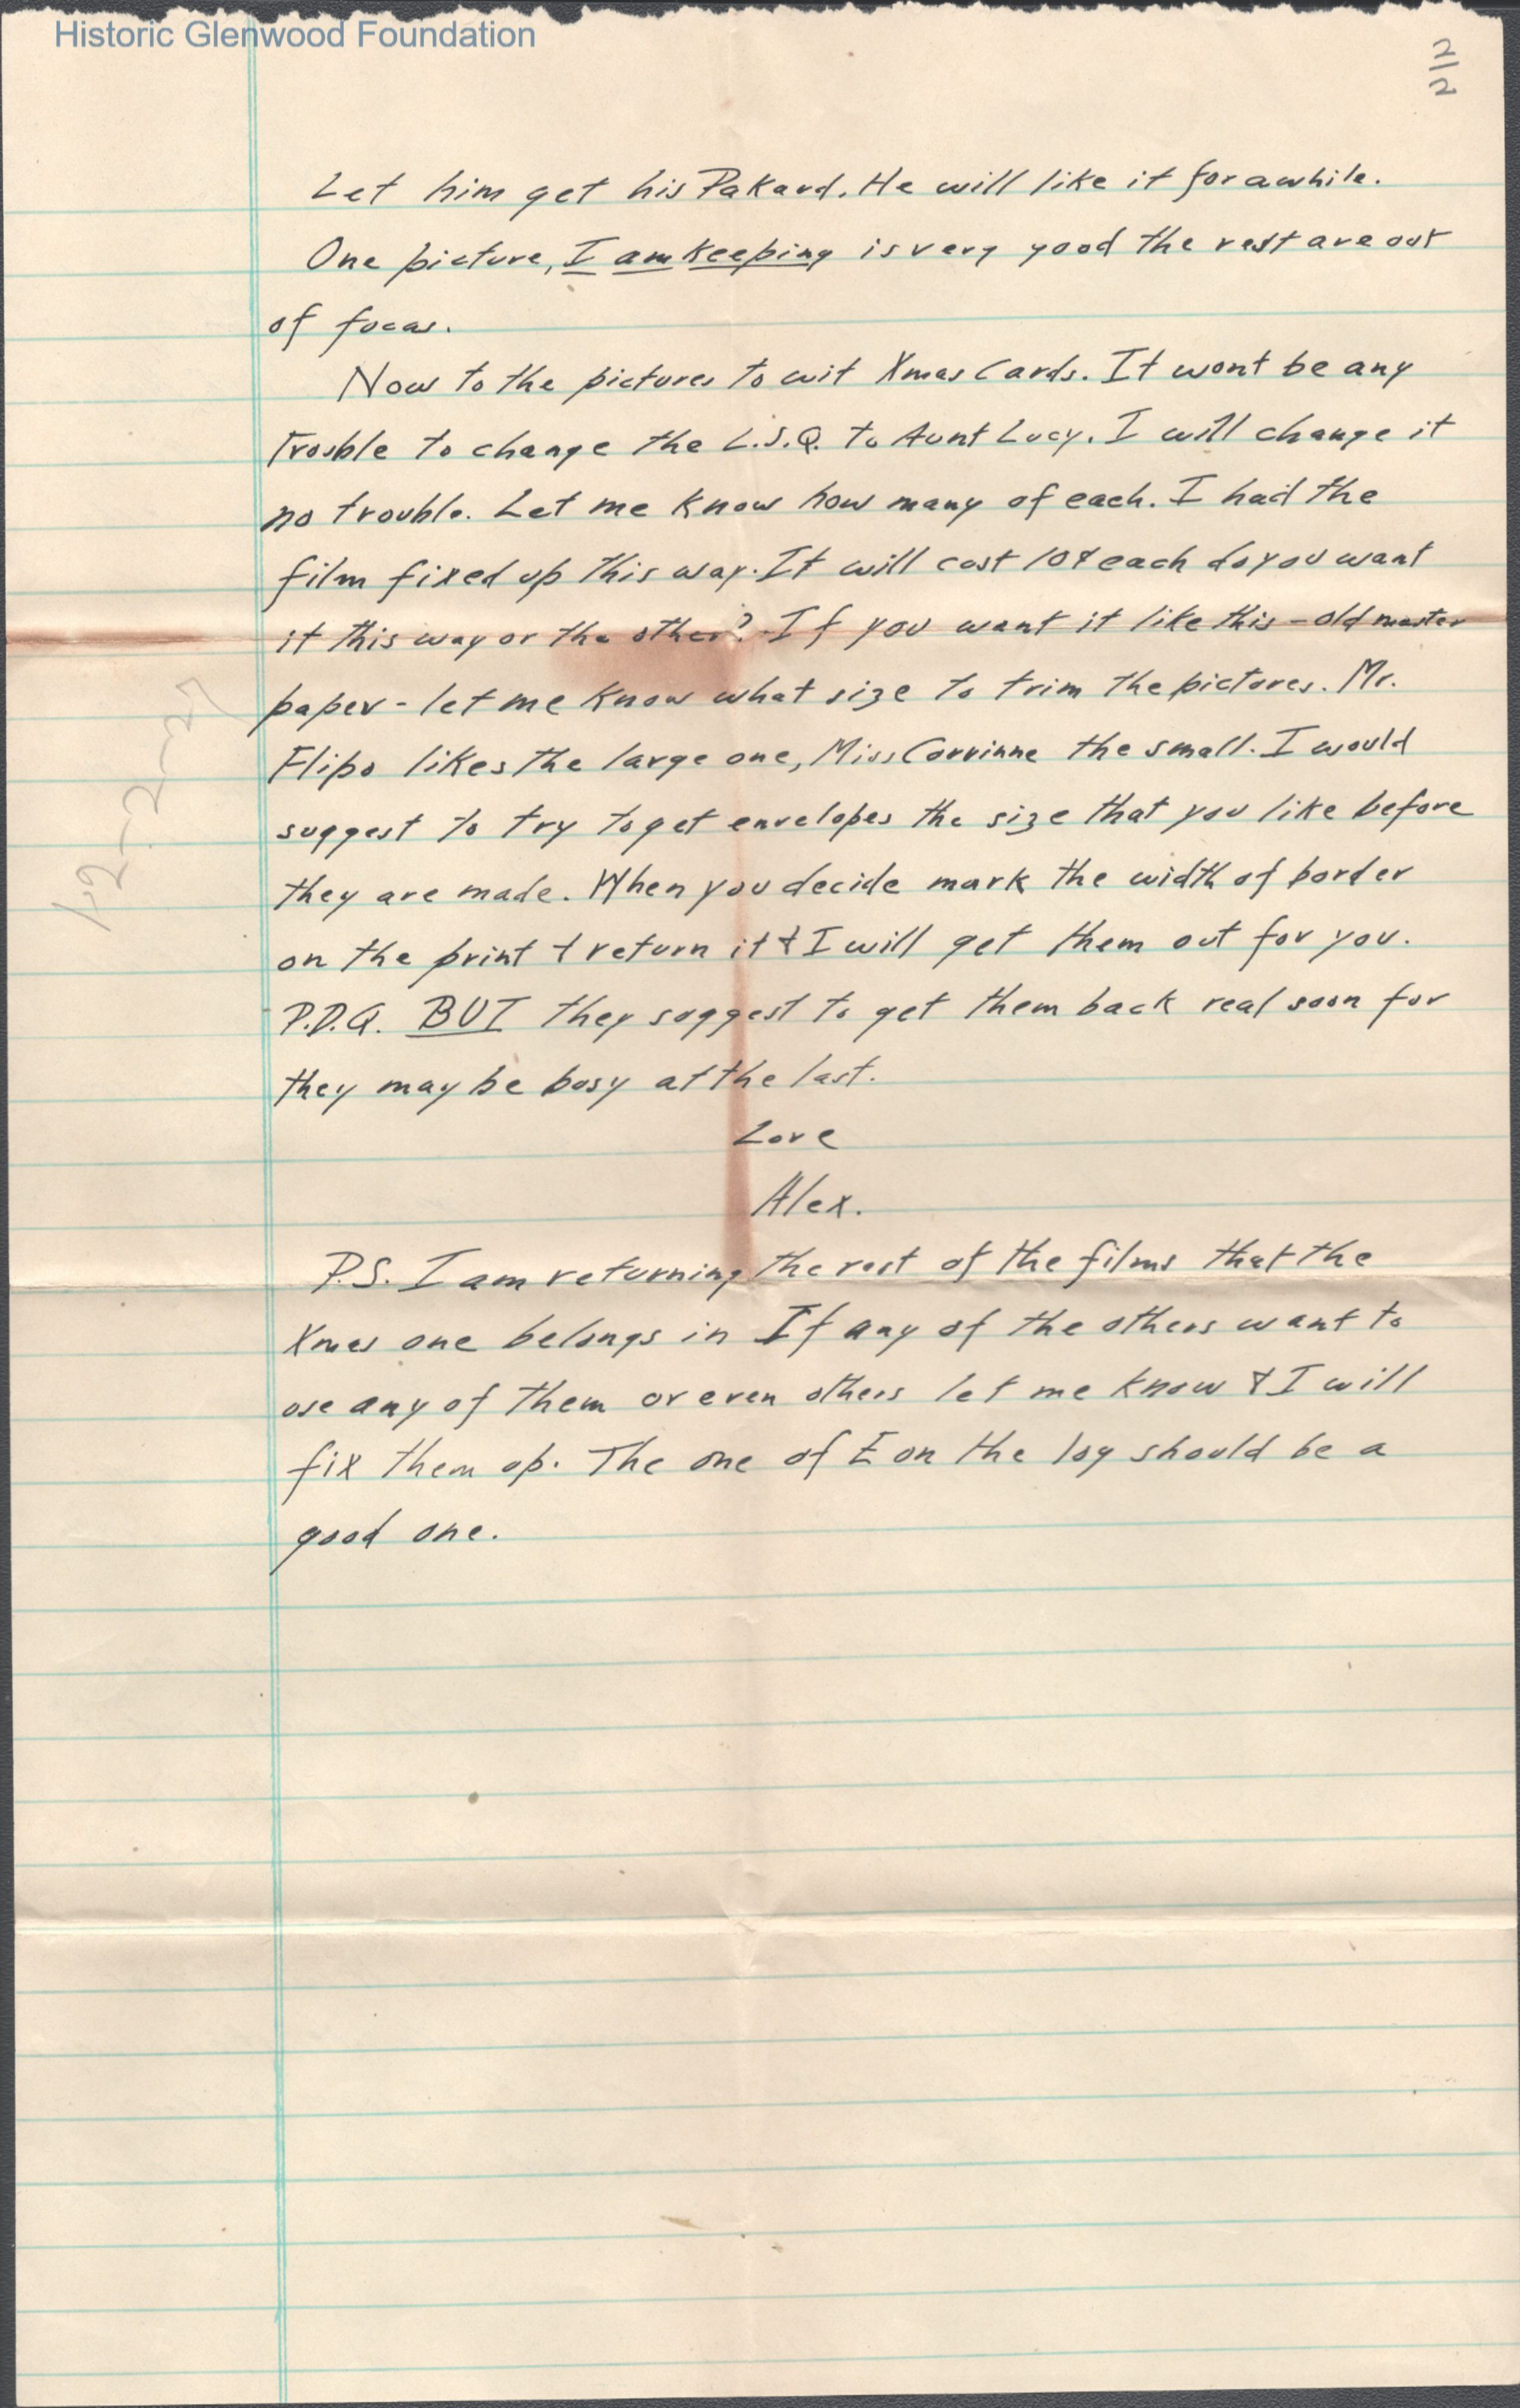 Historic Glenwood Foundation
2/2
Let him get his Pakard. He will like it for awhile.
One picture, I am keeping is very good the rest are out
of focas.
Now to the pictures to wit Xmas Cards. It wont be any
trouble to change the L.S.Q. to Aunt Lucy. I will change it
no trouble. Let me know how many of each. I had the
film fixed up this way. It will cost 10¢ each do you want
it this way or the other? If you want it like this - old master
paper - let me know what size to trim the pictures. Mr.
Flipo likes the large one, Miss Corrinne the small. I would
suggest to try to get envelopes the size that you like before
they are made. When you decide mark the width of border
on the print & return it & I will get them out for you.
P.D.Q. BUT they suggest to get them back real soon for
they may be busy at the last.
Love
Alex.
P.S. I am returning the rest of the films that the
Xmas one belongs in If any of the others want to
use any of them or even others let me know & I will
fix them up. The one of E on the log should be a
good one.